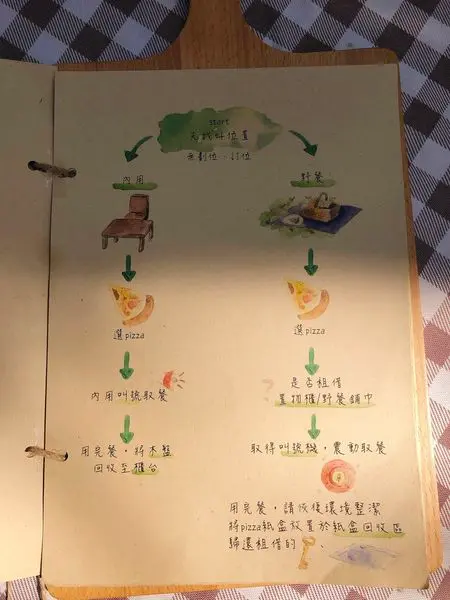 start
先找好位置
無劃位、訂位
內用
野餐
選pizza
選pizza
內用叫號取餐
是否租借
置物櫃/野餐鋪巾
用完餐，將木盤
回收至櫃台
取得叫號機，震動取餐
用完餐，請恢復環境整潔
將pizza紙盒放置於紙盒回收區
歸還租借的 、